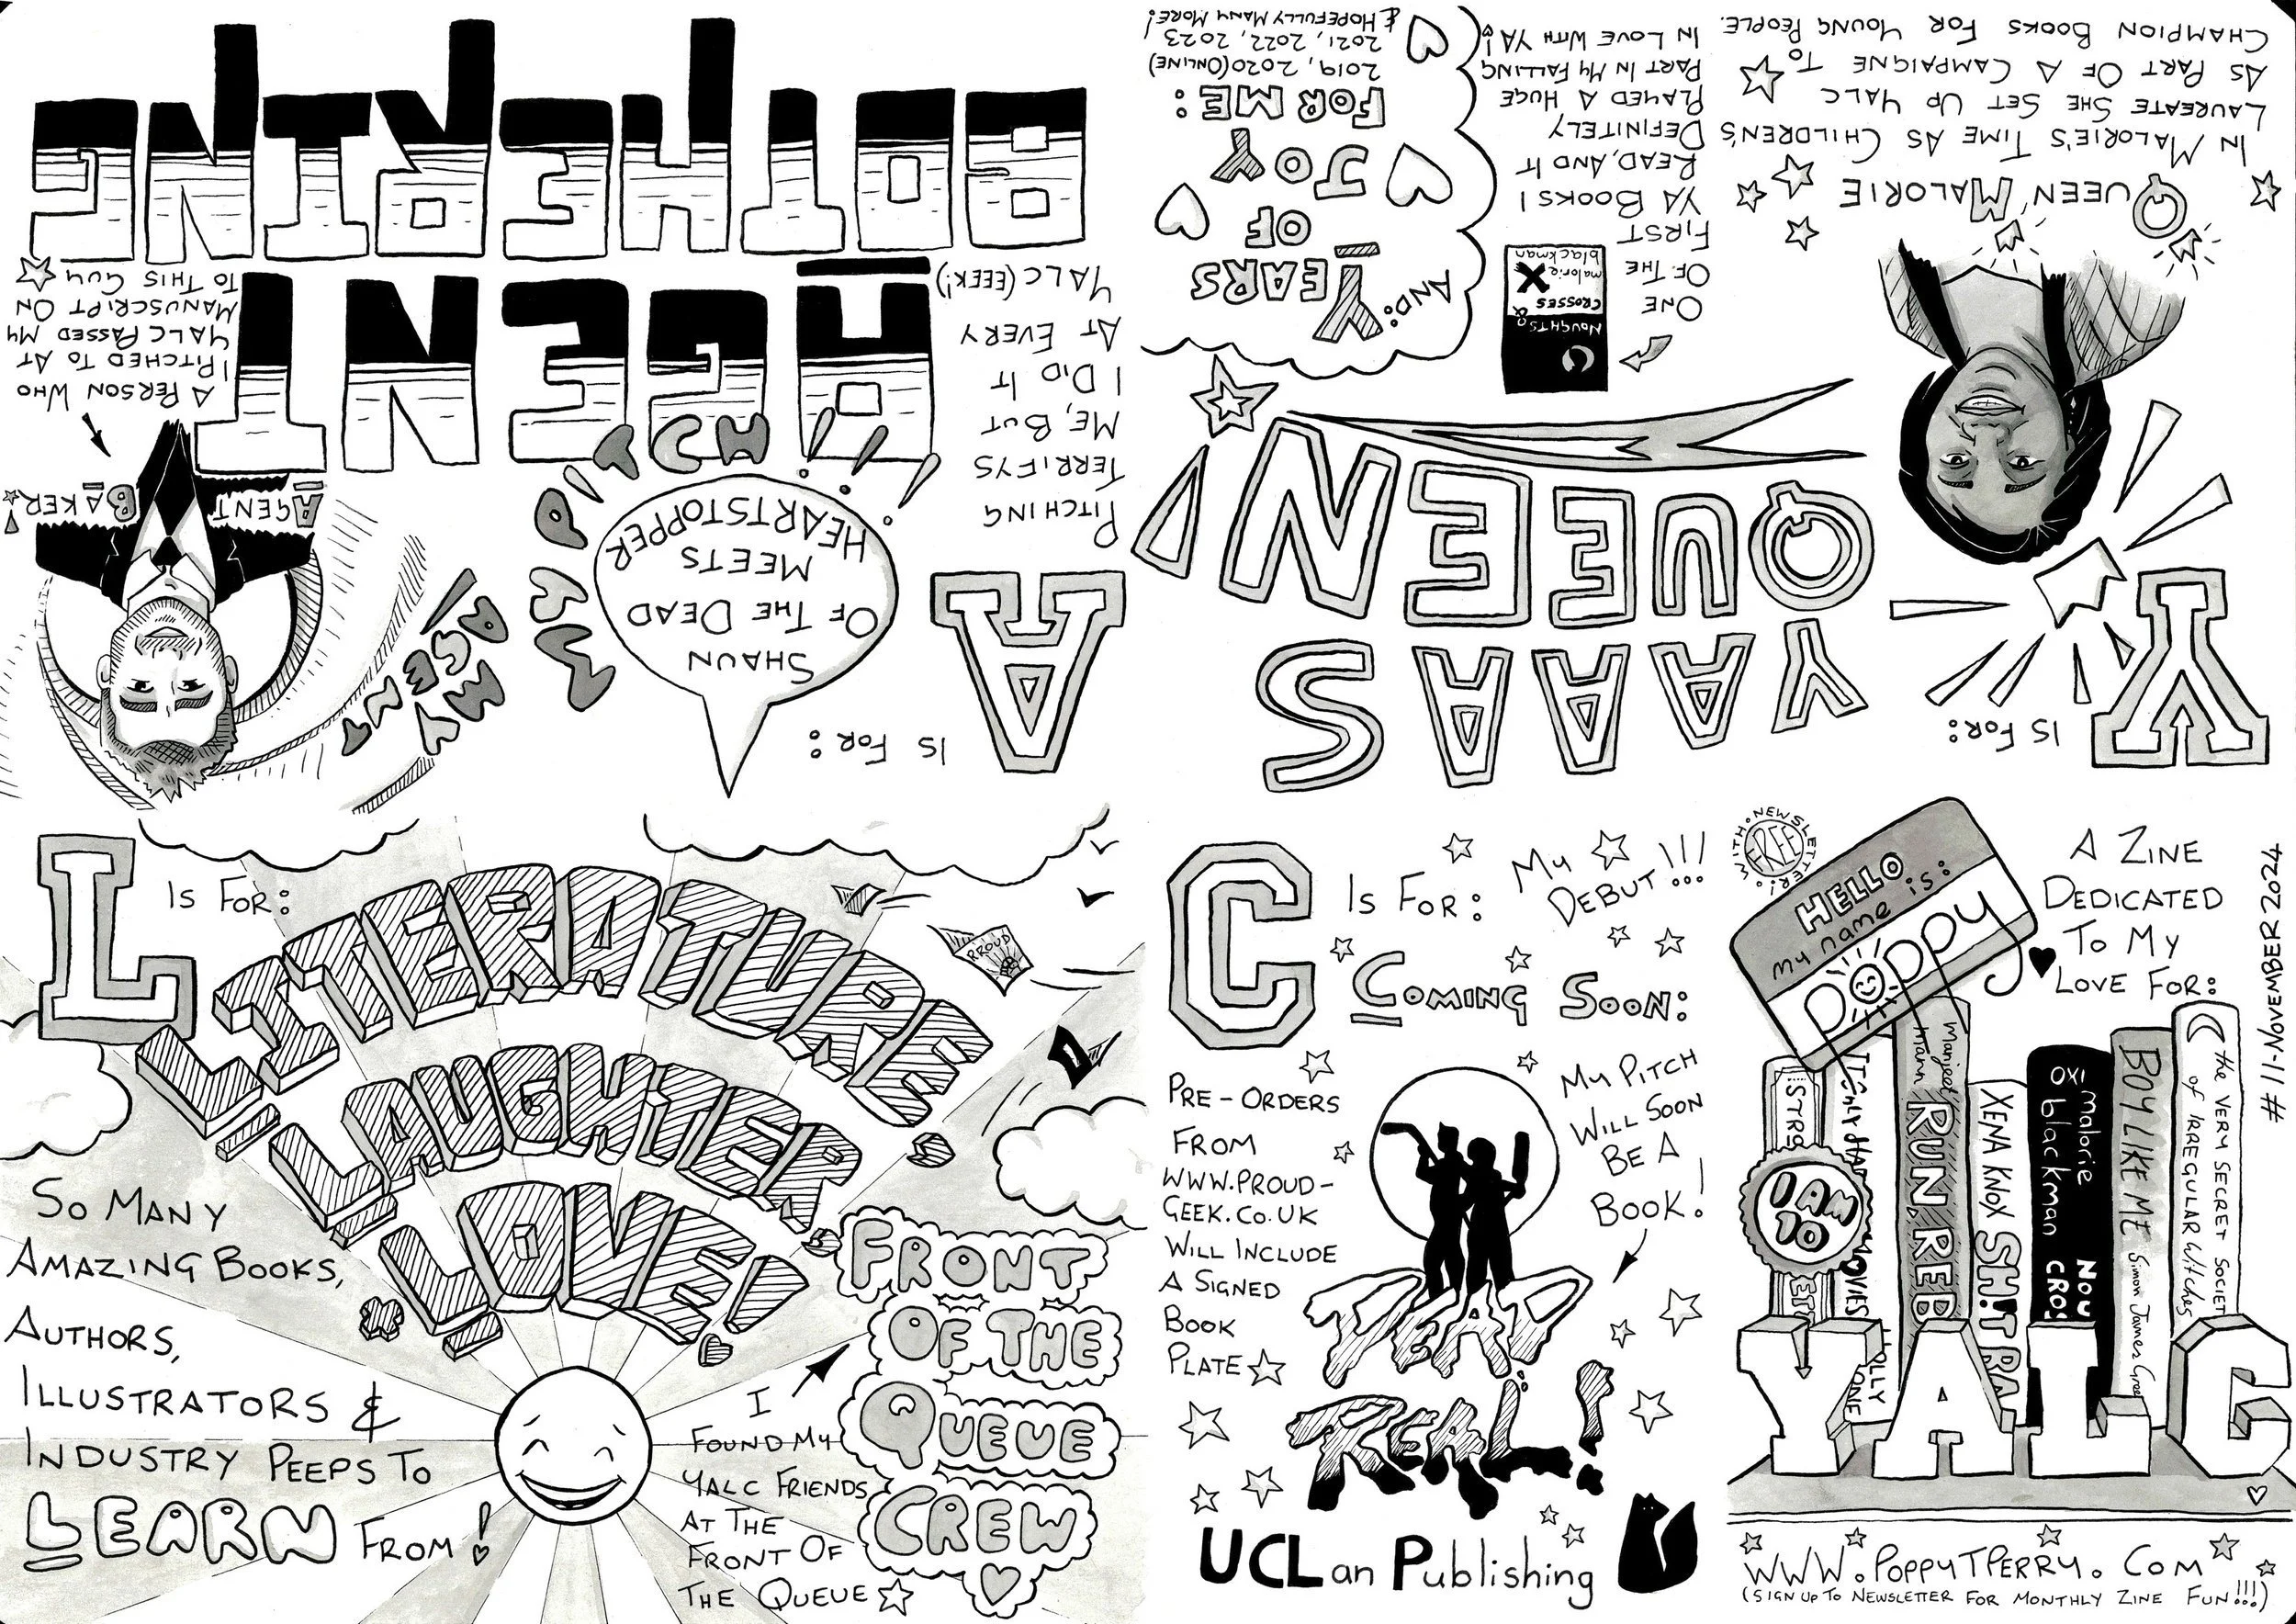 WITH NEWSLETTER!
FREE
HELLO
my name is:
poppy
A ZINE
DEDICATED
TO MY
LOVE FOR:
#11-NOVEMBER 2024
I AM
10
manjeet mann RUN REB
XENA KNOX SH!T
malorie blackman
BOY LIKE ME Simon James Gree
the VERY SECRET SOCIET
of IRREGULAR Witches
YALC
WWW.POPPYTPERRY.COM
(SIGN UP TO NEWSLETTER FOR MONTHLY ZINE FUN!!!)
Y IS FOR:
YAAS
QUEEN!
QUEEN MALORIE
IN MALORIE'S TIME AS CHILDREN'S
LAUREATE SHE SET UP YALC
AS PART OF A CAMPAIGNE TO
CHAMPION BOOKS FOR YOUNG PEOPLE.
NOUGHTS &
CROSSES
malorie
blackman
ONE
OF THE
FIRST
YA BOOKS I
READ, AND IT
DEFINITELY
PLAYED A HUGE
PART IN MY FALLING
IN LOVE WITH YA!
AND:
YEARS
OF
JOY
FOR ME:
2019, 2020(ONLINE)
2021, 2022, 2023
& HOPEFULLY MANY MORE!
A IS FOR:
SHAUN
OF THE DEAD
MEETS
HEARTSTOPPER
MWAPITCH!!!
HEY
AGENT!
PITCHING
TERRIFYS
ME, BUT
I DID IT
AT EVERY
YALC (EEEK!)
AGENT
BOTHERING
AGENT BAKER!
A PERSON WHO
I PITCHED TO AT
YALC PASSED MY
MANUSCRIPT ON
TO THIS GUY
L IS FOR:
LITERATURE,
LAUGHTER,
LOVE!
PROUD
SO MANY
AMAZING BOOKS,
AUTHORS,
ILLUSTRATORS &
INDUSTRY PEEPS TO
LEARN FROM!
I
FOUND MY
YALC FRIENDS
AT THE
FRONT OF
THE QUEUE
FRONT
OF THE
QUEUE
CREW
C IS FOR: MY
DEBUT!!!
COMING SOON:
PRE-ORDERS
FROM
WWW.PROUD-
GEEK.CO.UK
WILL INCLUDE
A SIGNED
BOOK
PLATE
MY PITCH
WILL SOON
BE A
BOOK!
DEAD
REAL!
UCLan Publishing